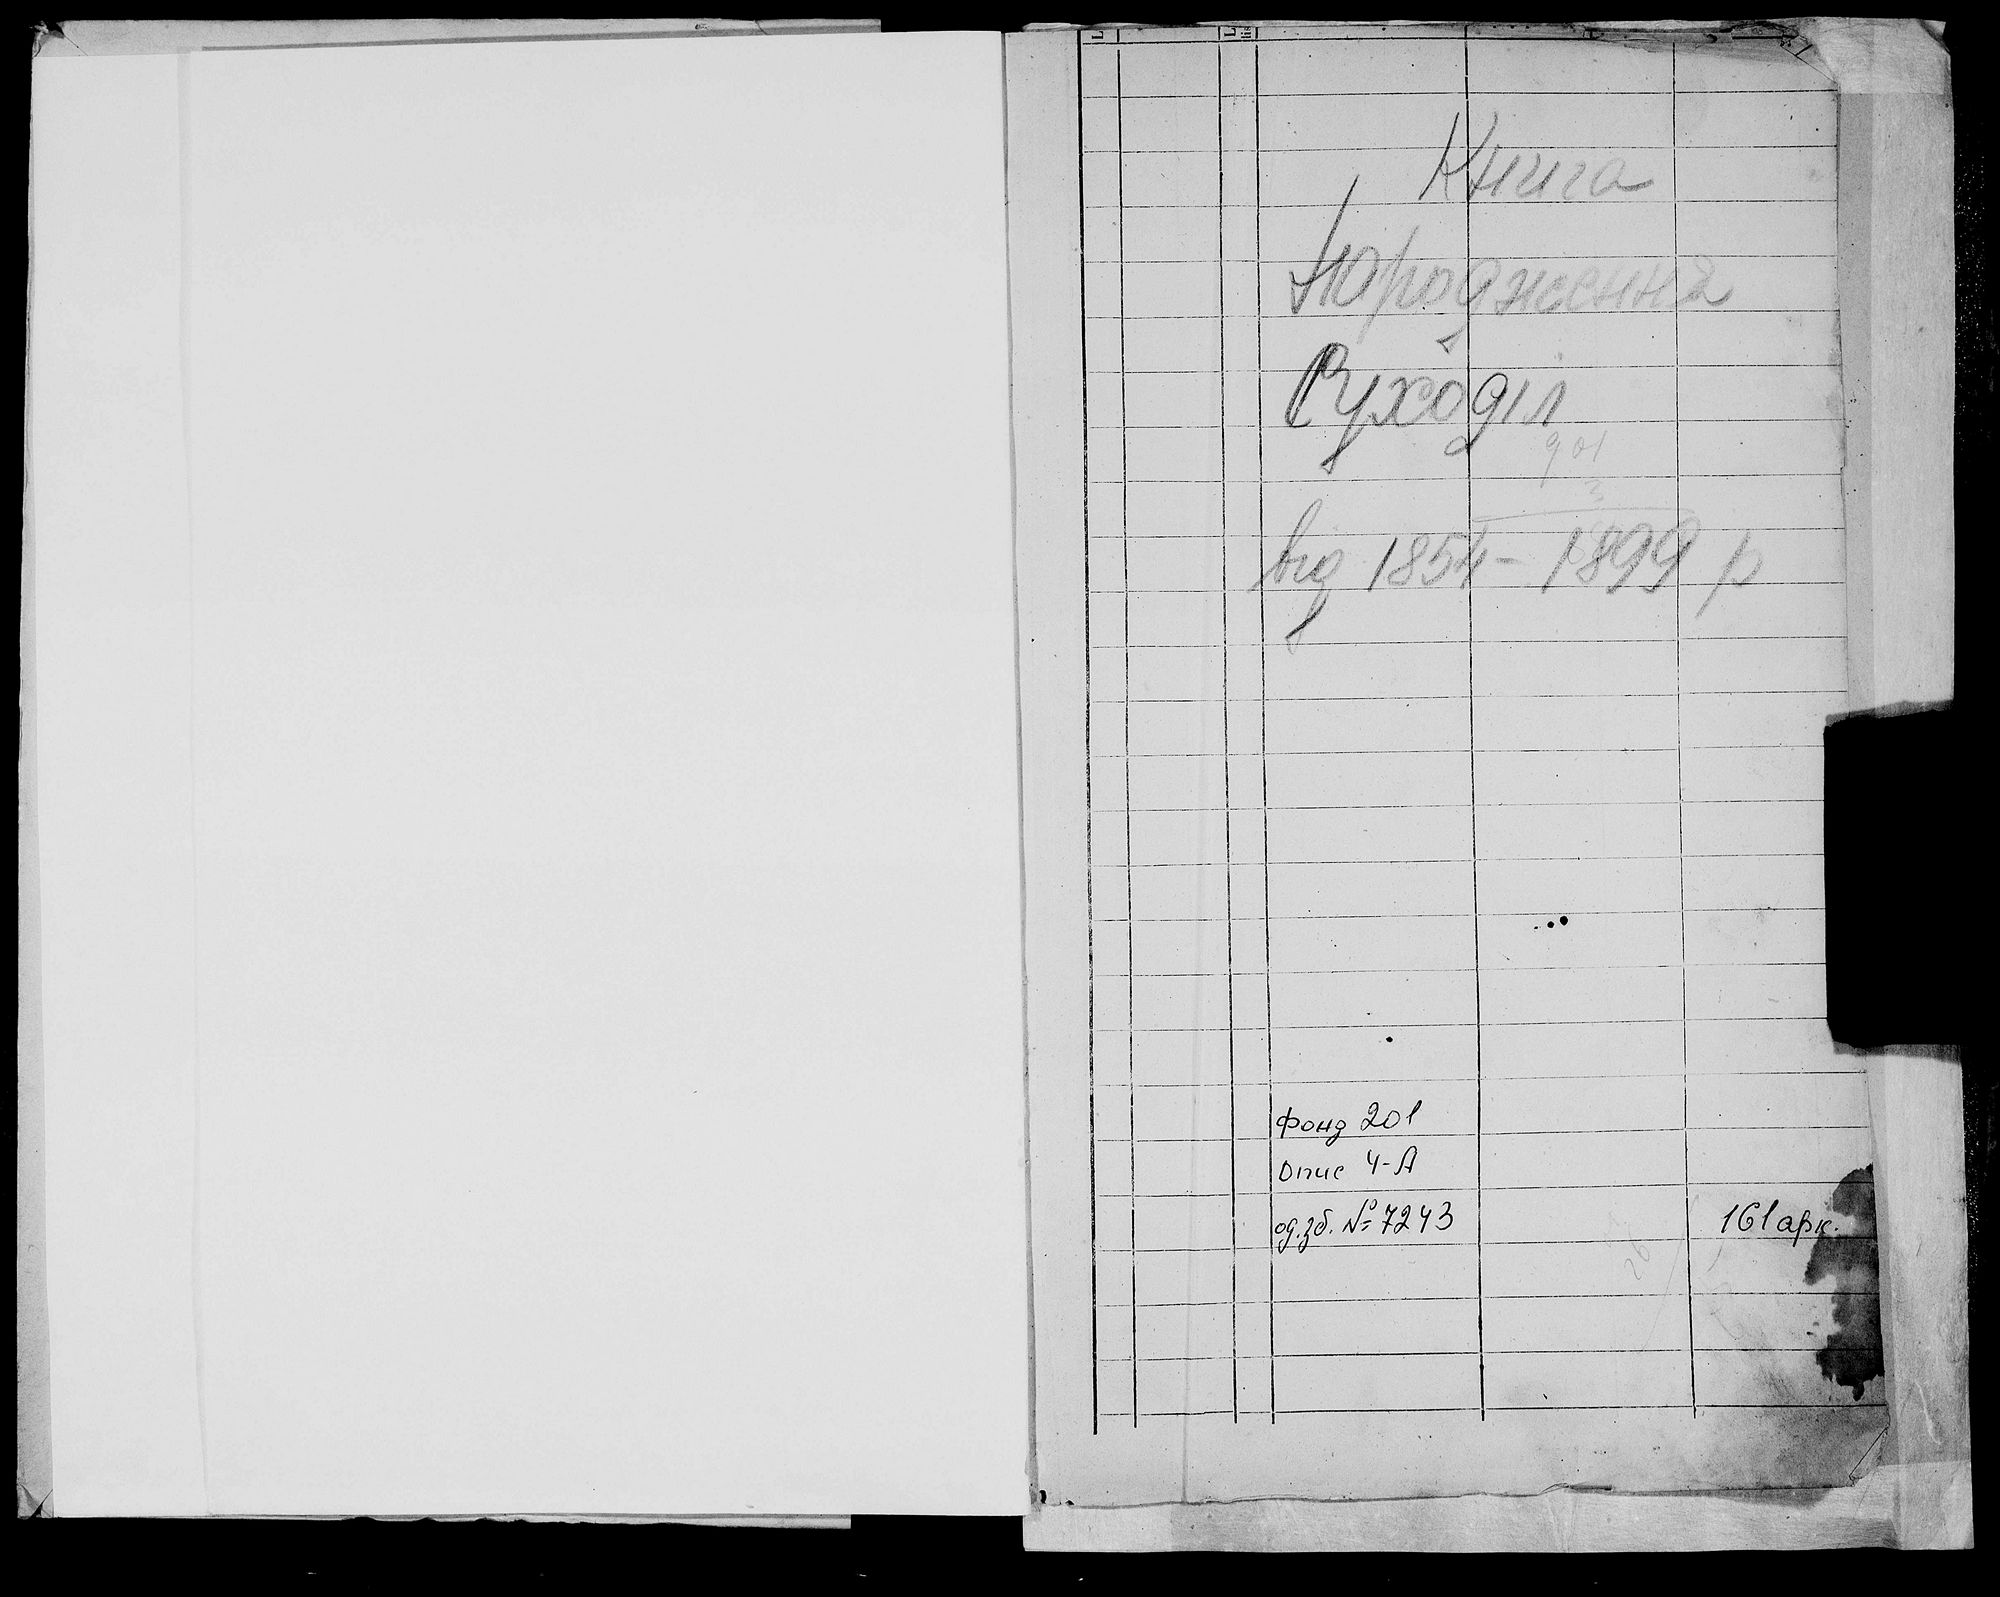 Книга
народження
Суходіл
від 1854 - 1899 р
Фонд 201
Опис 4-А
од.зб. № 7243
161 арк.